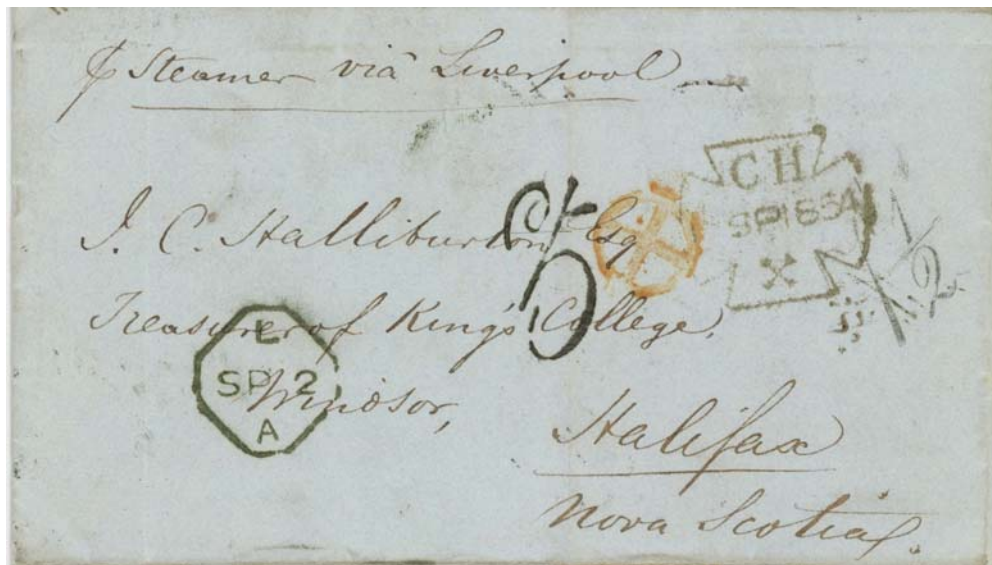 ⅌ Steamer viâ Liverpool
C H
SP 1854
X
J. C. Halliburton Esq
Treasurer of King's College,
Windsor,
L
SP 2
A
Halifax
Nova Scotia.
5